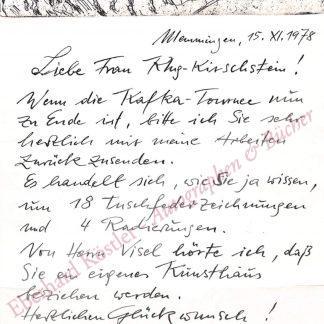 Memmingen, 15. XI. 1978
Liebe Frau Klug-Kirschstein!
Wenn die Kafka-Tournee nun
zu Ende ist, bitte ich Sie sehr
herzlich mir meine Arbeiten
zurück zusenden.
Es handelt sich, wie Sie ja wissen,
um 18 Tuschfederzeichnungen
und 4 Radierungen.
Von Herrn Visel hörte ich, daß
Sie ein eigenes Kunsthaus
beziehen werden.
Herzlichen Glückwunsch!
Eberhard Köstler Autographen & Bücher